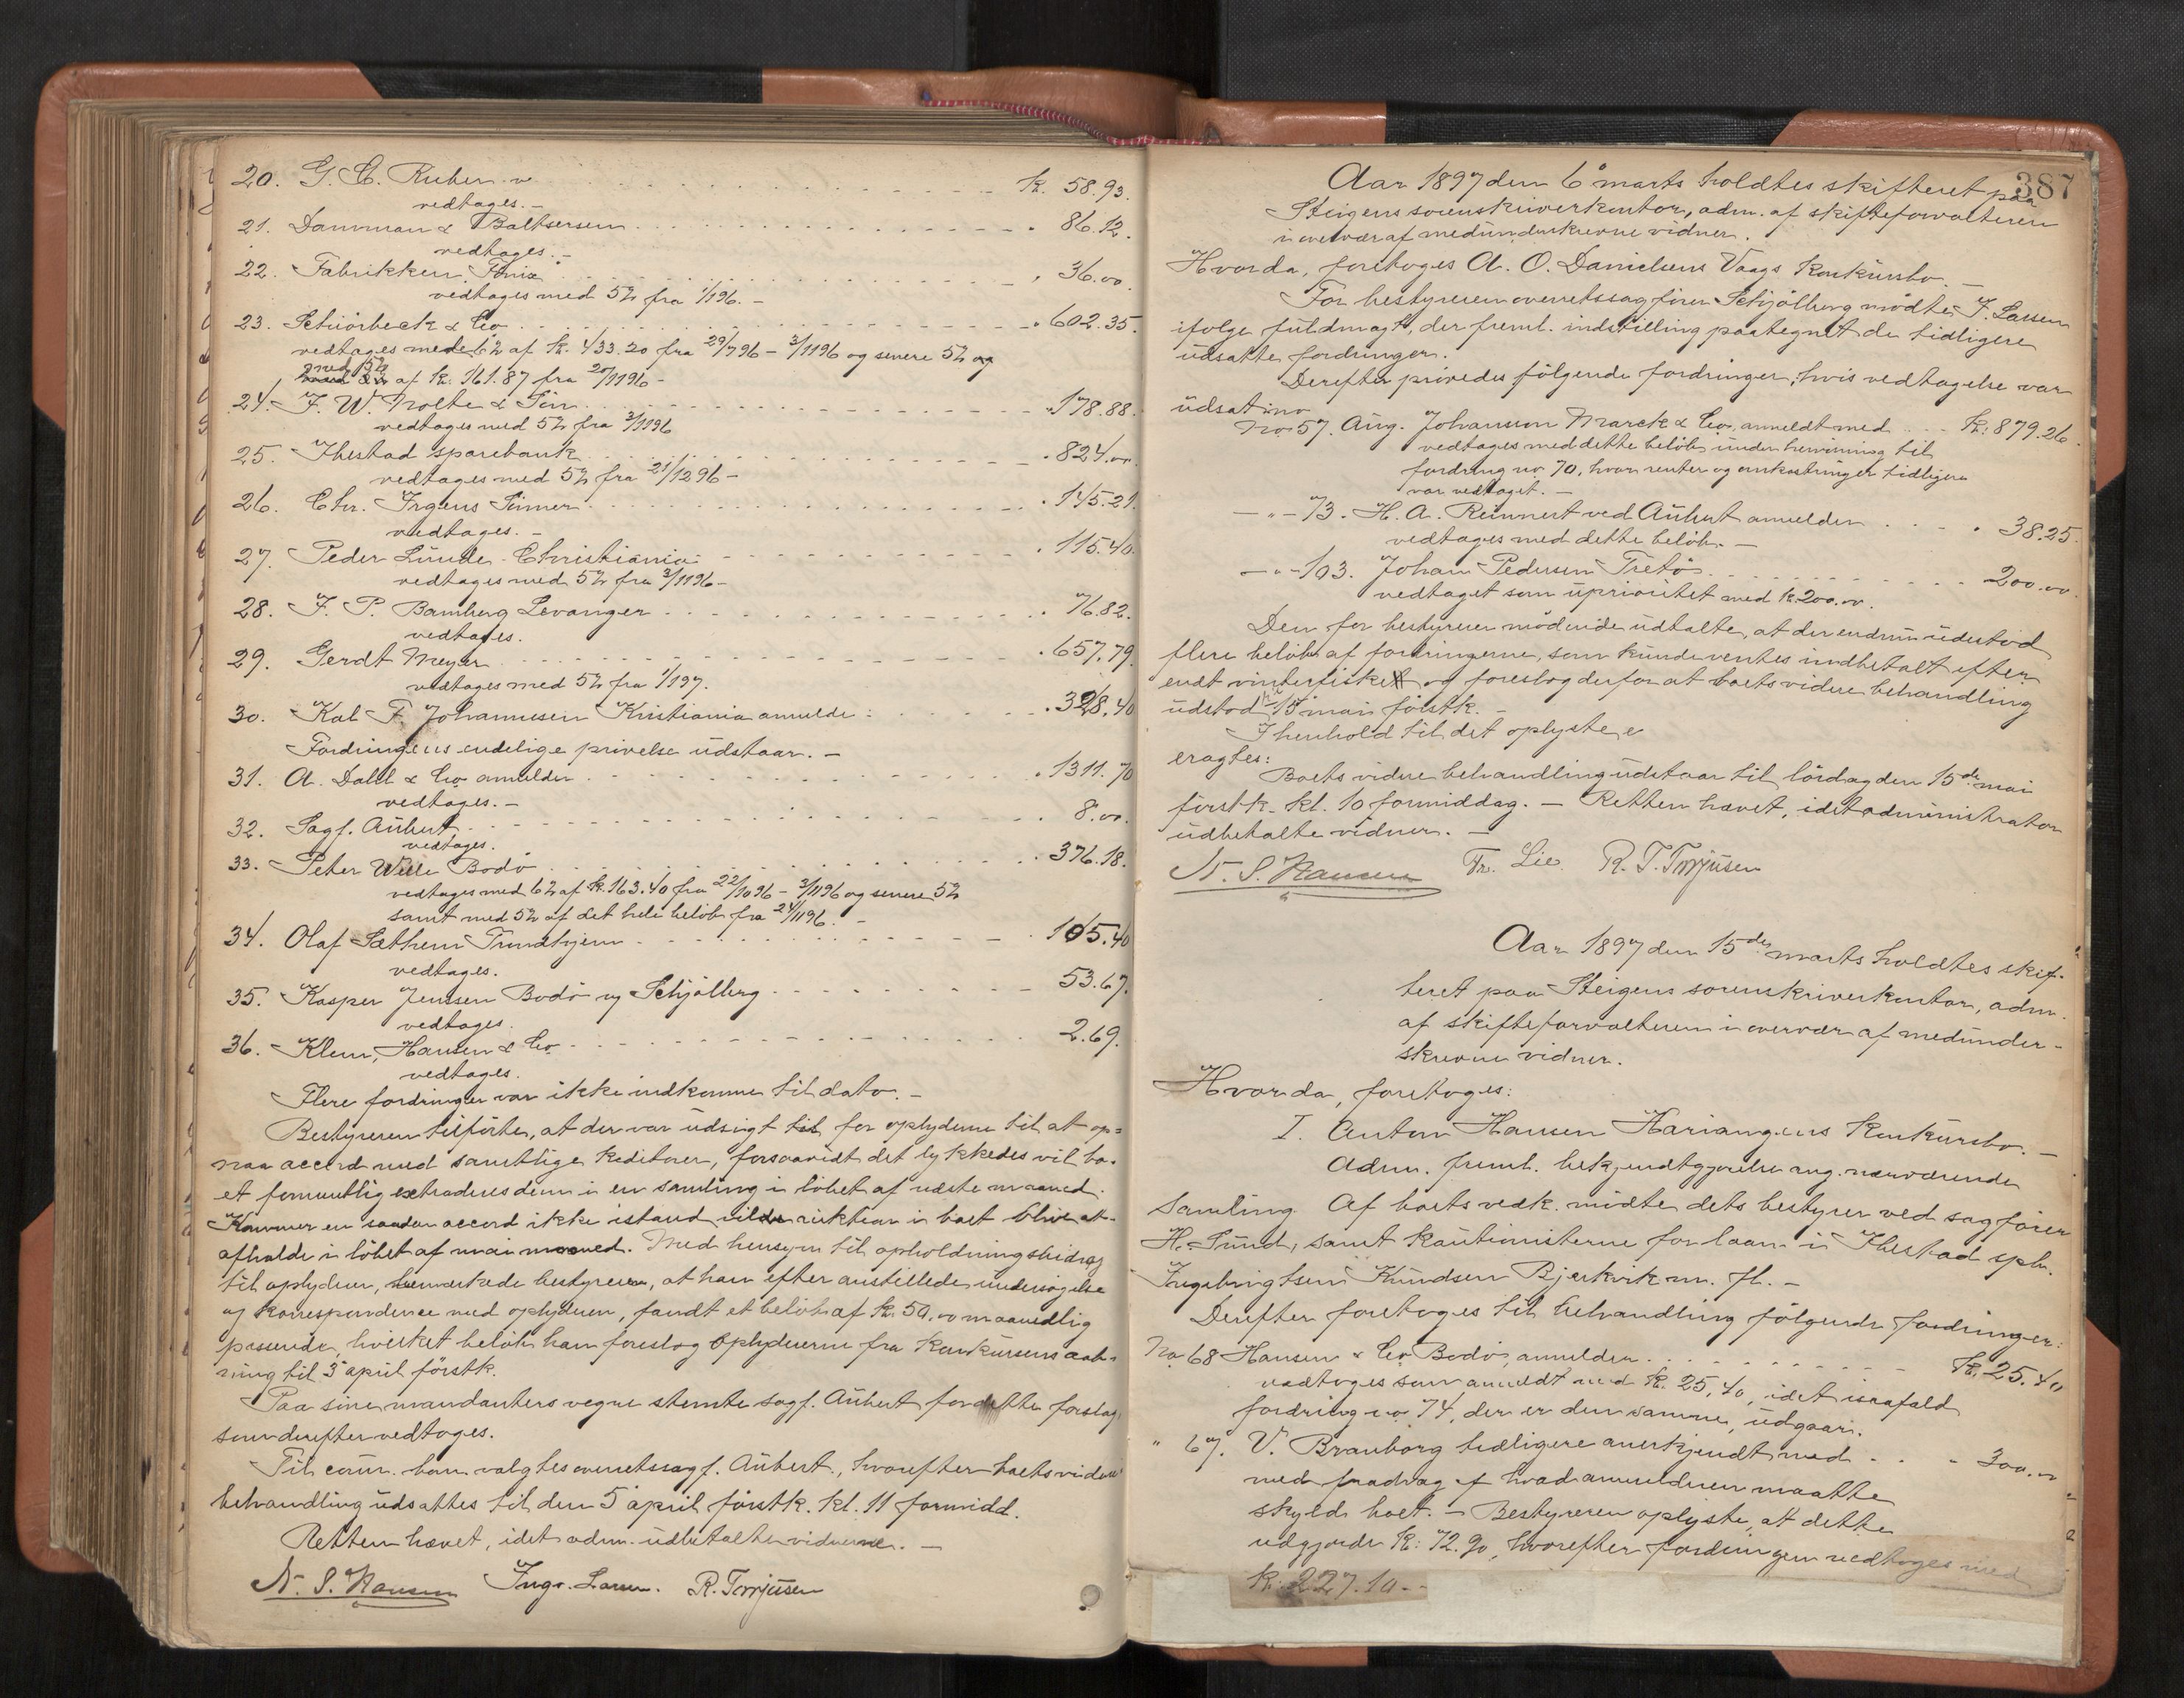 20. G. C. Rieber kr. 58.93.
vedtages. –
21. Damman & Baltsersen 86.12.
vedtages. –
22. Fabrikken Fönix 36.00.
vedtages med 5% fra 1/1 96. –
23. Schiörbeck & Co 602.35.
vedtages med 6% af kr. 433.20 fra 29/7 96 – 3/11 96 og senere 5% og
med 5% af kr. 161.87 fra 20/11 96 –
24. F. W. Nolte & Sön 178.88.
vedtages med 5% fra 3/11 96
25. Ibestad sparebank 824.00.
vedtages med 5% fra 21/12 96 –
26. Chr. Irgens Sinner 145.21.
vedtages. –
27. Peder Lunde Christiania 115.40.
vedtages med 5% fra 3/11 96 –
28. F. P. Bamberg Levanger 76.82.
vedtages.
29. Gerdt Meyer 657.79.
vedtages med 5% fra 1/1 97.
30. Kal F. Johannesen Kristiania anmelde: 328.40
Fordringens endelige prövelse udstaar. –
31. A. Dahl & Co anmelder 1311.70
vedtages. –
32. Sagf. Aubert 8.00.
vedtages.
33. Peter Wiile Bodö 376.18.
vedtages med 6% af kr. 163.40 fra 22/10 96 – 3/11 96 og senere 5%
samt med 5% af det hele belöb fra 24/11 96. –
34. Olaf Sæthern Trondhjem 105.40
vedtages.
35. Kasper Jensen Bodö og Schjölberg 53.67.
vedtages.
36. Klem, Hansen & Co 2.69.
vedtages.
Flere fordringer var ikke indkomne til dato. –
Bestyreren tilförte, at der var udsigt til for opbyderne til at op=
naa accord med samtlige kreditorer, forsaavidt det lykkedes vil bo-
et formentlig extraderes dem i en samling i löbet af næste maaned.
Kommer en saadan accord ikke istand vilde auktion i boet blive at-
afholde i löbet af mai maaned. Med hensyn til opholdningsbidrag
til opbyderen, bemærkede bestyreren, at han efter anstillede undersögelse
og korrespondence med opbyderen, fandt et belöb af kr. 50.00 maanedlig
passende, hvilket belöb han foreslog opbyderne fra konkursens aab-
ning til 5 april förstk.
Paa sine mandanters vegne stemte sagf. Aubert for dette forslag,
som derefter vedtoges.
Til cour. bon. valgtes overretssagf. Aubert, hvorefter boets videre
behandling udsattes til den 5 april förstk. kl. 11 formidd.
Retten hævet, idet adm. udbetalte vidnerne. –
N. S. Hansen Ingv. Larsen. R. Torrjusen
387
Aar 1897 den 6 marts holdtes skifteret paa
Steigens sorenskriverkontor, adm. af skifteforvalteren
i overvær af medunderskrevne vidner.
Hvorda, foretoges A. O. Danielsens Vaags Konkursbo. –
For bestyreren overretssagförer Schjölberg mödte F. Larsen
ifölge fuldmagt, der freml. indstilling paategnet de tidligere
udsatte fordringer.
Derefter prövedes fölgende fordringer, hvis vedtagelse var
udsat:
No 57. Aug. Johanson Marck & Co, anmeldt med kr: 879.26.
vedtages med dette belöb under henvisning til
fordring no 70, hvor renter og omkostninger tidligere
var vedtaget. –
– " – 73. H. A. Reinnert ved Aubert anmelder 38.25.
vedtages med dette belöb. –
– " – 103. Johan Pedersen Tretö 200.00.
vedtaget som uprioritet med kr. 200.00.
Den for bestyreren mödende udtalte, at der endnu udestod
flere belöb af fordringerne, som kunde ventes indbetalt efter
endt vinterfiske og foreslog derfor at boets videre behandling
udstod til 15 mai förstk. –
I henhold til det oplyste
eragtes:
Boets videre behandling udstaar til lördag den 15de mai
förstk. kl. 10 formiddag. – Retten hævet, idet administrator
udbetalte vidner. –
N. S. Hansen Fr. Lie. R. T. Torrjusen
Aar 1897 den 15de marts holdtes skif-
teret paa Steigens sorenskriverkontor, adm.
af skifteforvalteren i overvær af medunder-
skrevne vidner.
Hvorda, foretoges:
I. Anton Hansen Hariangens Konkursbo. –
Adm. freml. bekjendtgjörelse ang. nærværende
Samling. Af boets vedk. mödte dets bestyrer ved sagförer
H. Sund, samt kautionisterne for laan i Ibestad spb.
Ingebrigtsen Knudsen Bjerkvik m. fl. –
Derefter foretoges til behandling fölgende fordringer:
No 68 Hansen & Co Bodö, anmelder kr. 25.40
vedtoges som anmeldt med kr. 25.40, idet isaafald
fordring no 74, der er den samme, udgaar.
" 67. V. Bramborg tidligere anerkjendt med 300.00
med fradrag af hvad anmelderen maatte
skylde boet. – Bestyreren oplyste, at dette
udgjorde kr: 72.90, hvorefter fordringen vedtoges med
kr: 227.10 –